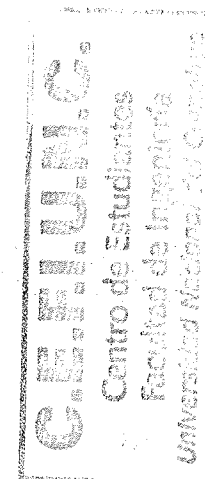 C.E.F.I.U.N.C.
Centro de Estudiantes
Facultad de Ingeniería
Universidad Nacional del